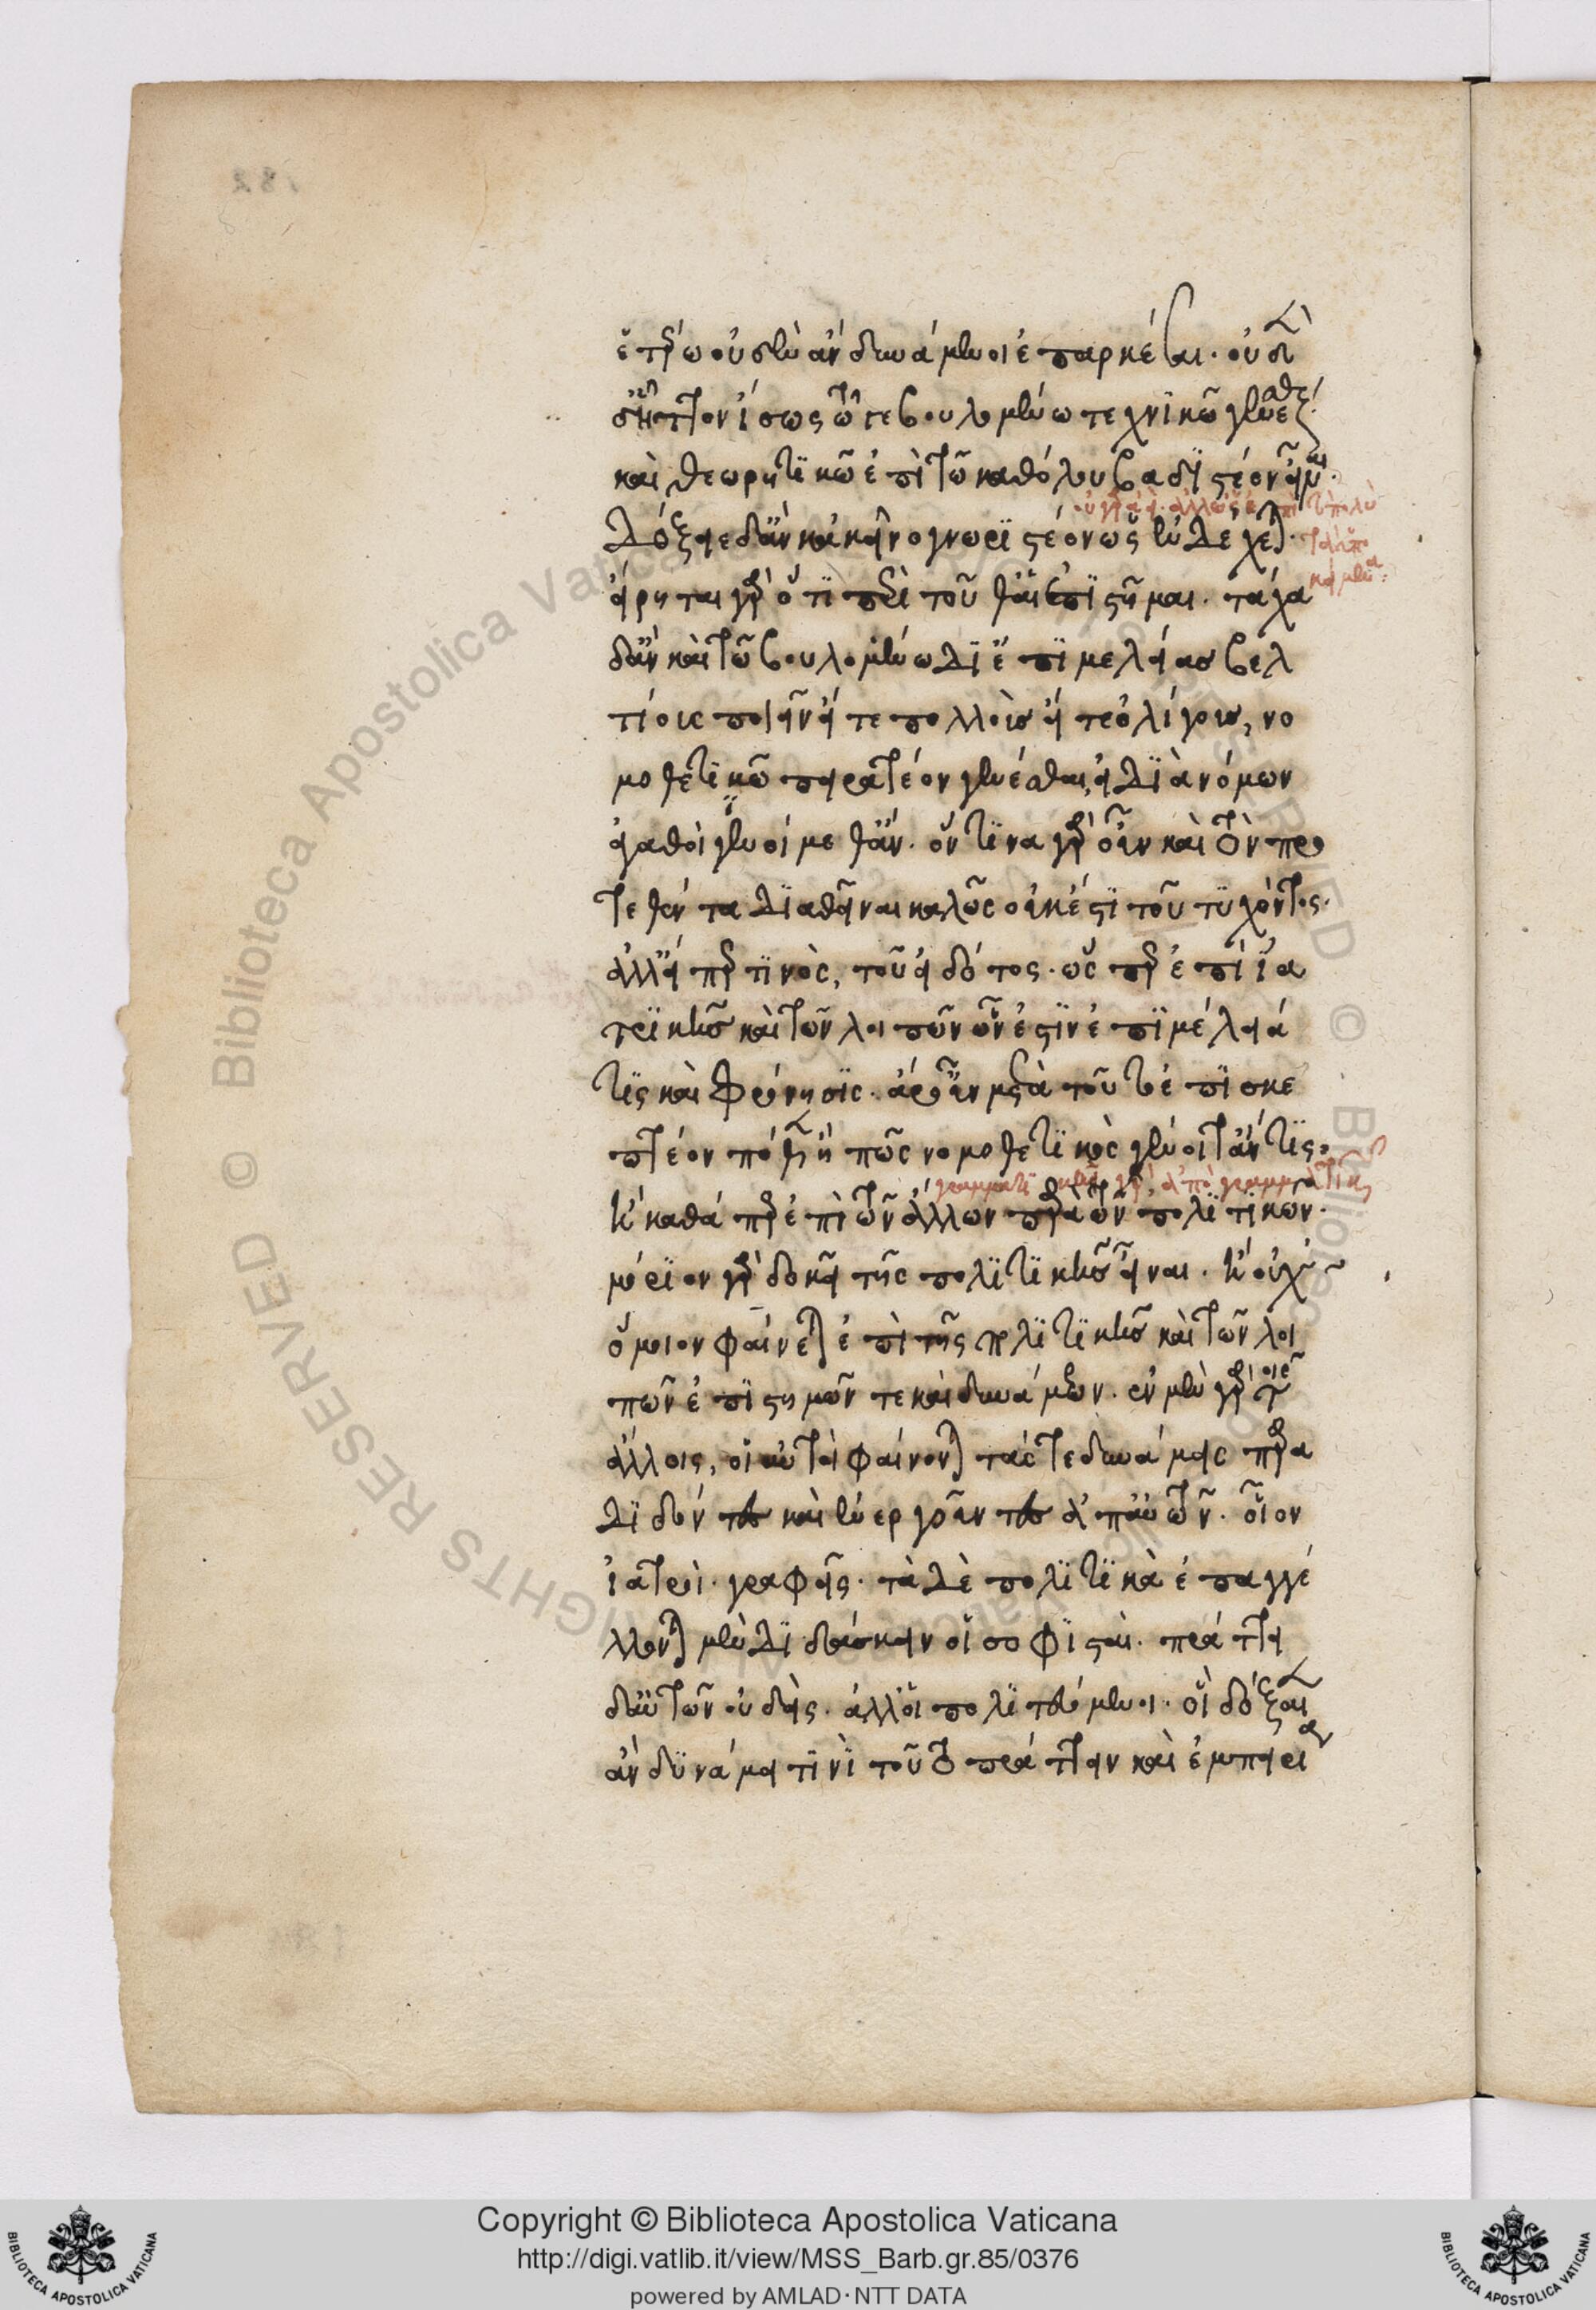 ἑτέρω οὐδὲν ἂν δυνάμενοι ἐπαρκέσαι. οὐδὲν
δ' ἧττον ἴσως τῶ γε βουλομένω τεχνικῶ γενέσθαι
καὶ θεωρητικῶ ἐπὶ τῶ καθόλου βαδιστέον εἶναι
δόξειε δ' ἂν κἀκεῖνο γνωριστέον ὡς ἐνδέχεται.
εἴρηται γὰρ ὅτι περὶ τοῦθ' αἱ ἐπιστῆμαι. τάχα
δ' ἂν καὶ τῶ βουλομένω δι' ἐπιμελείας βελ
τίους ποιεῖν εἴτε πολλοὺς εἴτε ὀλίγους, νο
μοθετικῶ πειρατέον γενέσθαι, εἰ διὰ νόμων
ἀγαθοὶ γενοίμεθ' ἄν. ὅντινα γὰρ οὖν καὶ τὸν προ
τεθέντα διαθεῖναι καλῶς οὐκ ἔστι τοῦ τυχόντος.
ἀλλ' εἴπερ τινὸς, τοῦ εἰδότος. ὥσπερ ἐπὶ ἰα
τρικῆς καὶ τῶν λοιπῶν ὧν ἐστιν ἐπιμέλειά
τις καὶ φρόνησις. ἆρ' οὖν μετὰ τοῦτο ἐπισκε
πτέον πόθεν ἢ πῶς νομοθετικὸς γένοιτ' ἄν τις.
ἢ καθάπερ ἐπὶ τῶν ἄλλων παρὰ τῶν πολιτικῶν.
μόριον γὰρ δοκεῖ τῆς πολιτικῆς εἶναι. ἢ οὐχ
ὅμοιον φαίνεται ἐπὶ τῆς πολιτικῆς καὶ τῶν λοι
πῶν ἐπιστημῶν τε καὶ δυνάμεων. ἐν μὲν γὰρ τοῖς
ἄλλοις, οἱ αὐτοὶ φαίνονται τάς τε δυνάμεις παρα
διδόντες καὶ ἐνεργοῦντες ἀπ' αὐτῶν. οἷον
ἰατροὶ. γραφεῖς. τὰ δὲ πολιτικὰ ἐπαγγέ
λλονται μὲν διδάσκειν οἱ σοφισταὶ. πράττει
δ' αὐτῶν οὐδεὶς. ἀλλ' οἱ πολιτευόμενοι. οἳ δόξαιεν
ἂν δυνάμει τινὶ τοῦτο πράττειν καὶ ἐμπειρία
Copyright © Biblioteca Apostolica Vaticana
http://digi.vatlib.it/view/MSS_Barb.gr.85/0376
powered by AMLAD·NTT DATA